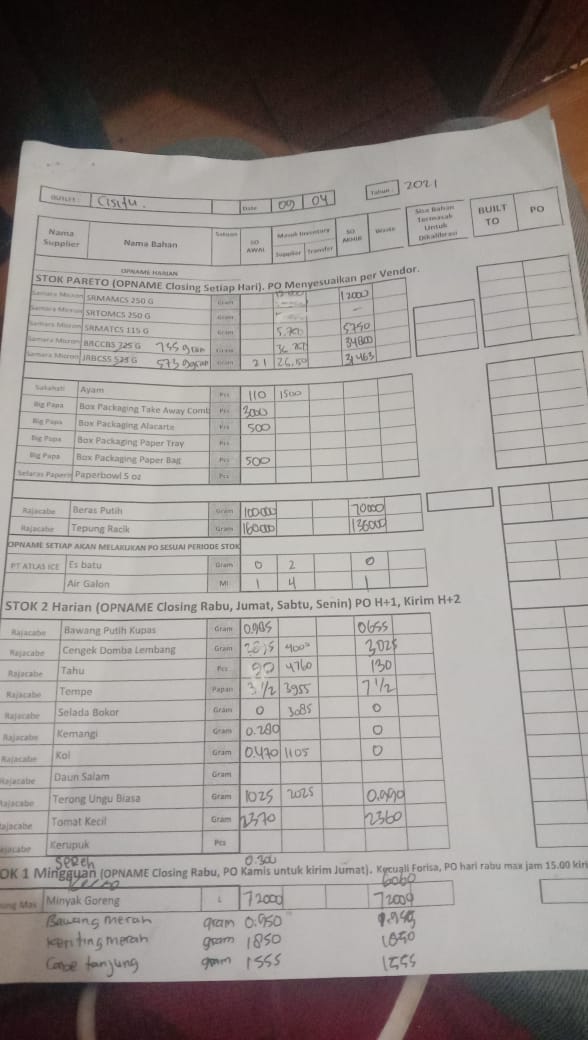 OUTLET : Cisitu. Date 09 04 Tahun : 2021
Nama Supplier Nama Bahan Satuan SO AWAL Masuk Inventory Supplier Transfer SO AKHIR Waste Sisa Bahan Termasuk Untuk Dikalibrasi BUILT TO PO
OPNAME HARIAN
STOK PARETO (OPNAME Closing Setiap Hari). PO Menyesuaikan per Vendor.
Samara Micron SRMAMCS 250 G Gram 12000
Samara Micron SRTOMCS 250 G Gram
Samara Micron SRMATCS 115 G Gram 5.700 5750
Samara Micron BACCBS 725 G 755 gram Gram 34800
Samara Micron JABCSS 525 G 573 Gram 21
Sukahati Ayam Pcs 110 1500
Big Papa Box Packaging Take Away Comb Pcs 3000
Big Papa Box Packaging Alacarte Pcs 500
Big Papa Box Packaging Paper Tray Pcs
Big Papa Box Packaging Paper Bag Pcs 500
Selaras Papers Paperbowl 5 oz Pcs
Rajacabe Beras Putih Gram 100000 70000
Rajacabe Tepung Racik Gram 160000 136000
OPNAME SETIAP AKAN MELAKUKAN PO SESUAI PERIODE STOK
PT ATLAS ICE Es batu Gram 0 2 0
Air Galon Ml 1 4 1
STOK 2 Harian (OPNAME Closing Rabu, Jumat, Sabtu, Senin) PO H+1, Kirim H+2
Rajacabe Bawang Putih Kupas Gram 0.985 0655
Rajacabe Cengek Domba Lembang Gram 4000 3025
Rajacabe Tahu Pcs 90 4760 130
Rajacabe Tempe Papan 3 1/2 3955 7 1/2
Rajacabe Selada Bokor Gram 0 3085 0
Rajacabe Kemangi Gram 0.280 0
Rajacabe Kol Gram 0.470 1105 0
Rajacabe Daun Salam Gram
Rajacabe Terong Ungu Biasa Gram 1025 2025 0.990
Rajacabe Tomat Kecil Gram 2370 2360
Rajacabe Kerupuk Pcs
Sereh 0.300
OK 1 Mingguan (OPNAME Closing Rabu, PO Kamis untuk kirim Jumat). Kecuali Forisa, PO hari rabu max jam 15.00 kiri
6060
Mas Minyak Goreng L 72000 72000
Bawang merah gram 0.950
Keriting merah gram 1850 1850
Cabe tanjung gram 1555 1555